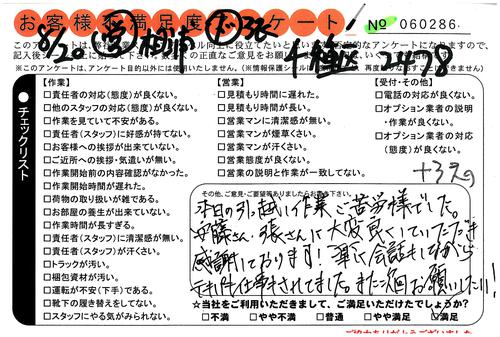 お客様不満足度アンケート! № 060286
8/20 営 相浦 張
2498
記入後
※このアンケートは、アンケート目的以外には使用いたしません。
チェックリスト
【作業】
□責任者の対応(態度)が良くない。
□他のスタッフの対応(態度)が良くない。
□作業を見ていて不安がある。
□責任者(スタッフ)に好感が持てない。
□お客様への挨拶が出来ていない。
□ご近所への挨拶・気遣いが無い。
□作業開始前の内容確認がなかった。
□作業開始時間が遅れた。
□荷物の取り扱いが雑である。
□お部屋の養生が出来ていない。
□作業時間が長すぎる。
□責任者(スタッフ)に清潔感が無い。
□責任者(スタッフ)が汗くさい。
□トラックが汚い。
□梱包資材が汚い。
□運転が不安(下手)である。
□靴下の履き替えをしてない。
□スタッフにやる気がみられない。
【営業】
□見積もり時間に遅れた。
□見積もり時間が長い。
□営業マンに清潔感が無い。
□営業マンが煙草くさい。
□営業マンが汗くさい。
□営業態度が良くない。
□営業の説明と作業が一致してない。
【受付・その他】
□電話の対応が良くない。
□オプション業者の説明
・作業が良くない。
□オプション業者の対応
(態度)が良くない。
その他、ご意見・ご要望等ありましたらお書き下さい。
本日の引越し作業ご苦労様でした。
安藤さん、張さんに大変良くしていただき
感謝しております!
また次回お願いしたい!
☆当社をご利用いただきまして、ご満足いただけたでしょうか?
□不満 □やや不満 □普通 □やや満足 □満足
ご協力ありがとうございました